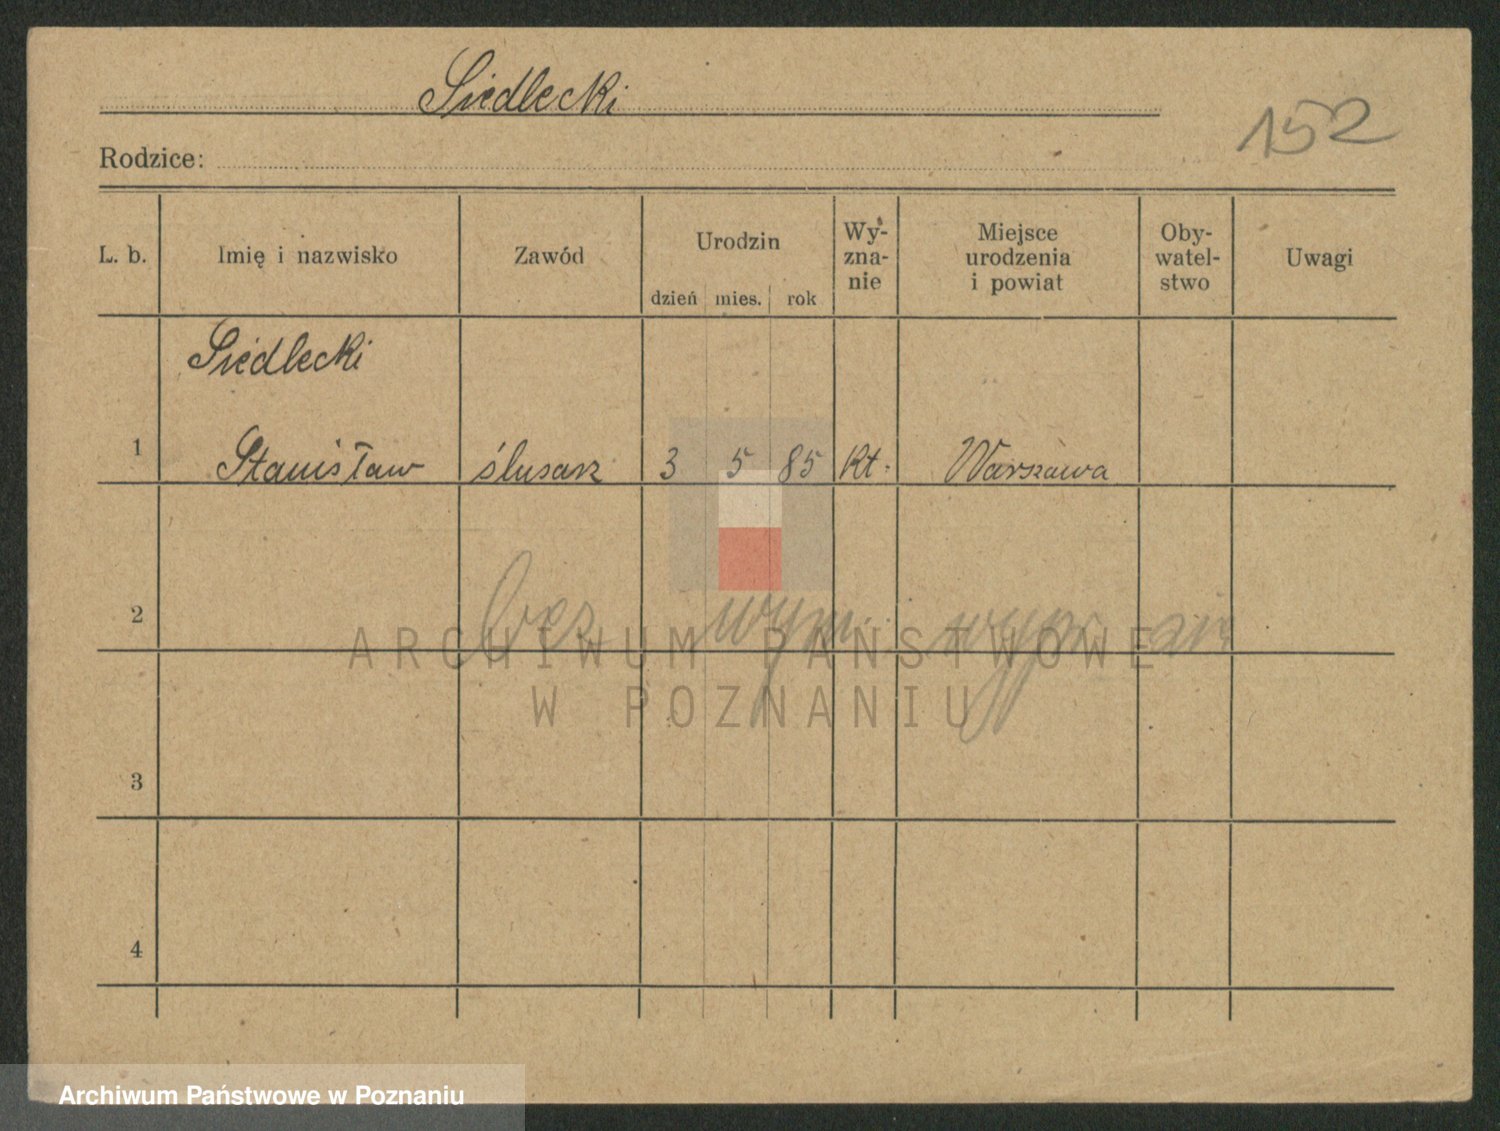 Siedlecki
152
Rodzice:
L. b. Imię i nazwisko Zawód Urodzin dzień mies. rok Wy-
zna-
nie Miejsce
urodzenia
i powiat Oby-
watel-
stwo Uwagi
Siedlecki
1 Stanisław ślusarz 3 5 85 Kt. Warszawa
2 bez wym.
ARCHIWUM PAŃSTWOWE
W POZNANIU
3
4
Archiwum Państwowe w Poznaniu